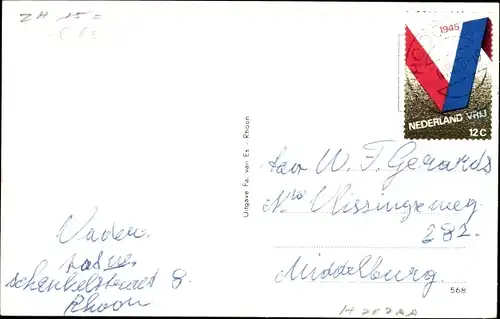 ZH 15 =
1945
NEDERLAND VRIJ
12c
Uitgave Fa. van Es - Rhoon
W. F. Gerards
Vlissingseweg
282.
Middelburg.
568
Vader.
Schenkelstraat 8.
Rhoon